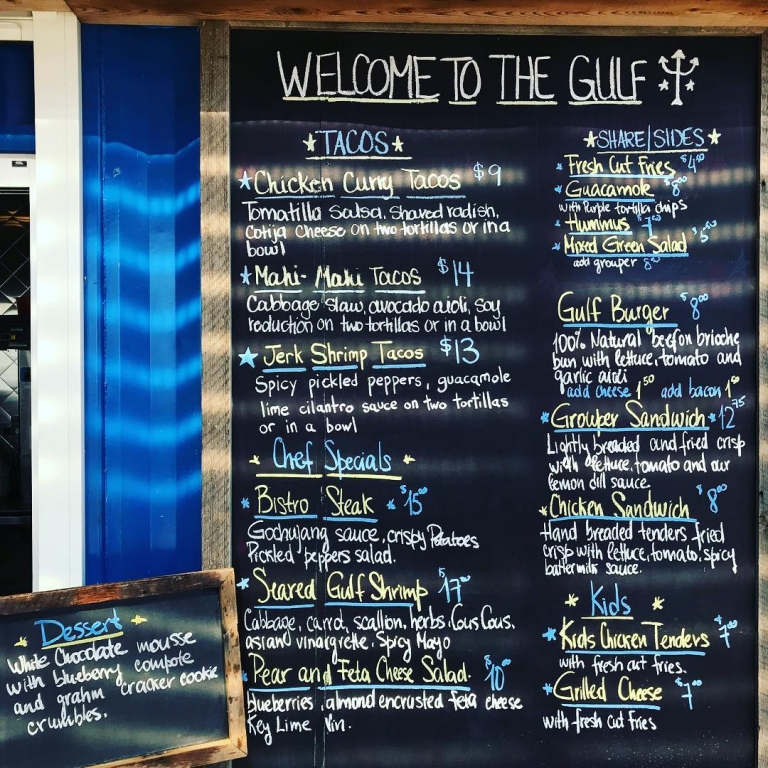 WELCOME TO THE GULF
TACOS
Chicken Curry Tacos $9
Tomatilla Salsa, Shaved radish,
Cotija Cheese on two tortillas or in a
bowl
Mahi-Mahi Tacos $14
Cabbage slaw, avocado aioli, soy
reduction on two tortillas or in a bowl
Jerk Shrimp Tacos $13
Spicy pickled peppers, guacamole
lime cilantro sauce on two tortillas
or in a bowl
Chef Specials
Bistro Steak $15.00
Gochujang sauce, crispy Potatoes
Pickled peppers salad.
Seared Gulf Shrimp $17.00
Cabbage, carrot, scallion, herbs, Cous Cous,
asian vinaigrette, Spicy Mayo
Pear and Feta Cheese Salad $10.00
blueberries, almond encrusted feta cheese
Key Lime Vin.
SHARE/SIDES
Fresh Cut Fries
Guacamole $8.00
with Purple tortilla chips
Hummus
Mixed Green Salad
add grouper
Gulf Burger $8.00
100% Natural beef on brioche
bun with lettuce, tomato and
garlic aioli
add cheese 1.50 add bacon
Grouper Sandwich 12.75
Lightly breaded and fried crisp
with lettuce, tomato and our
lemon dill sauce.
Chicken Sandwich $8.00
Hand breaded tenders fried
crisp with lettuce, tomato, spicy
buttermilk sauce.
Kids
Kids Chicken Tenders $7.00
with fresh cut fries.
Grilled Cheese $7.00
with fresh cut fries
Dessert
White Chocolate mousse
with blueberry compote
and grahm cracker cookie
crumbles.